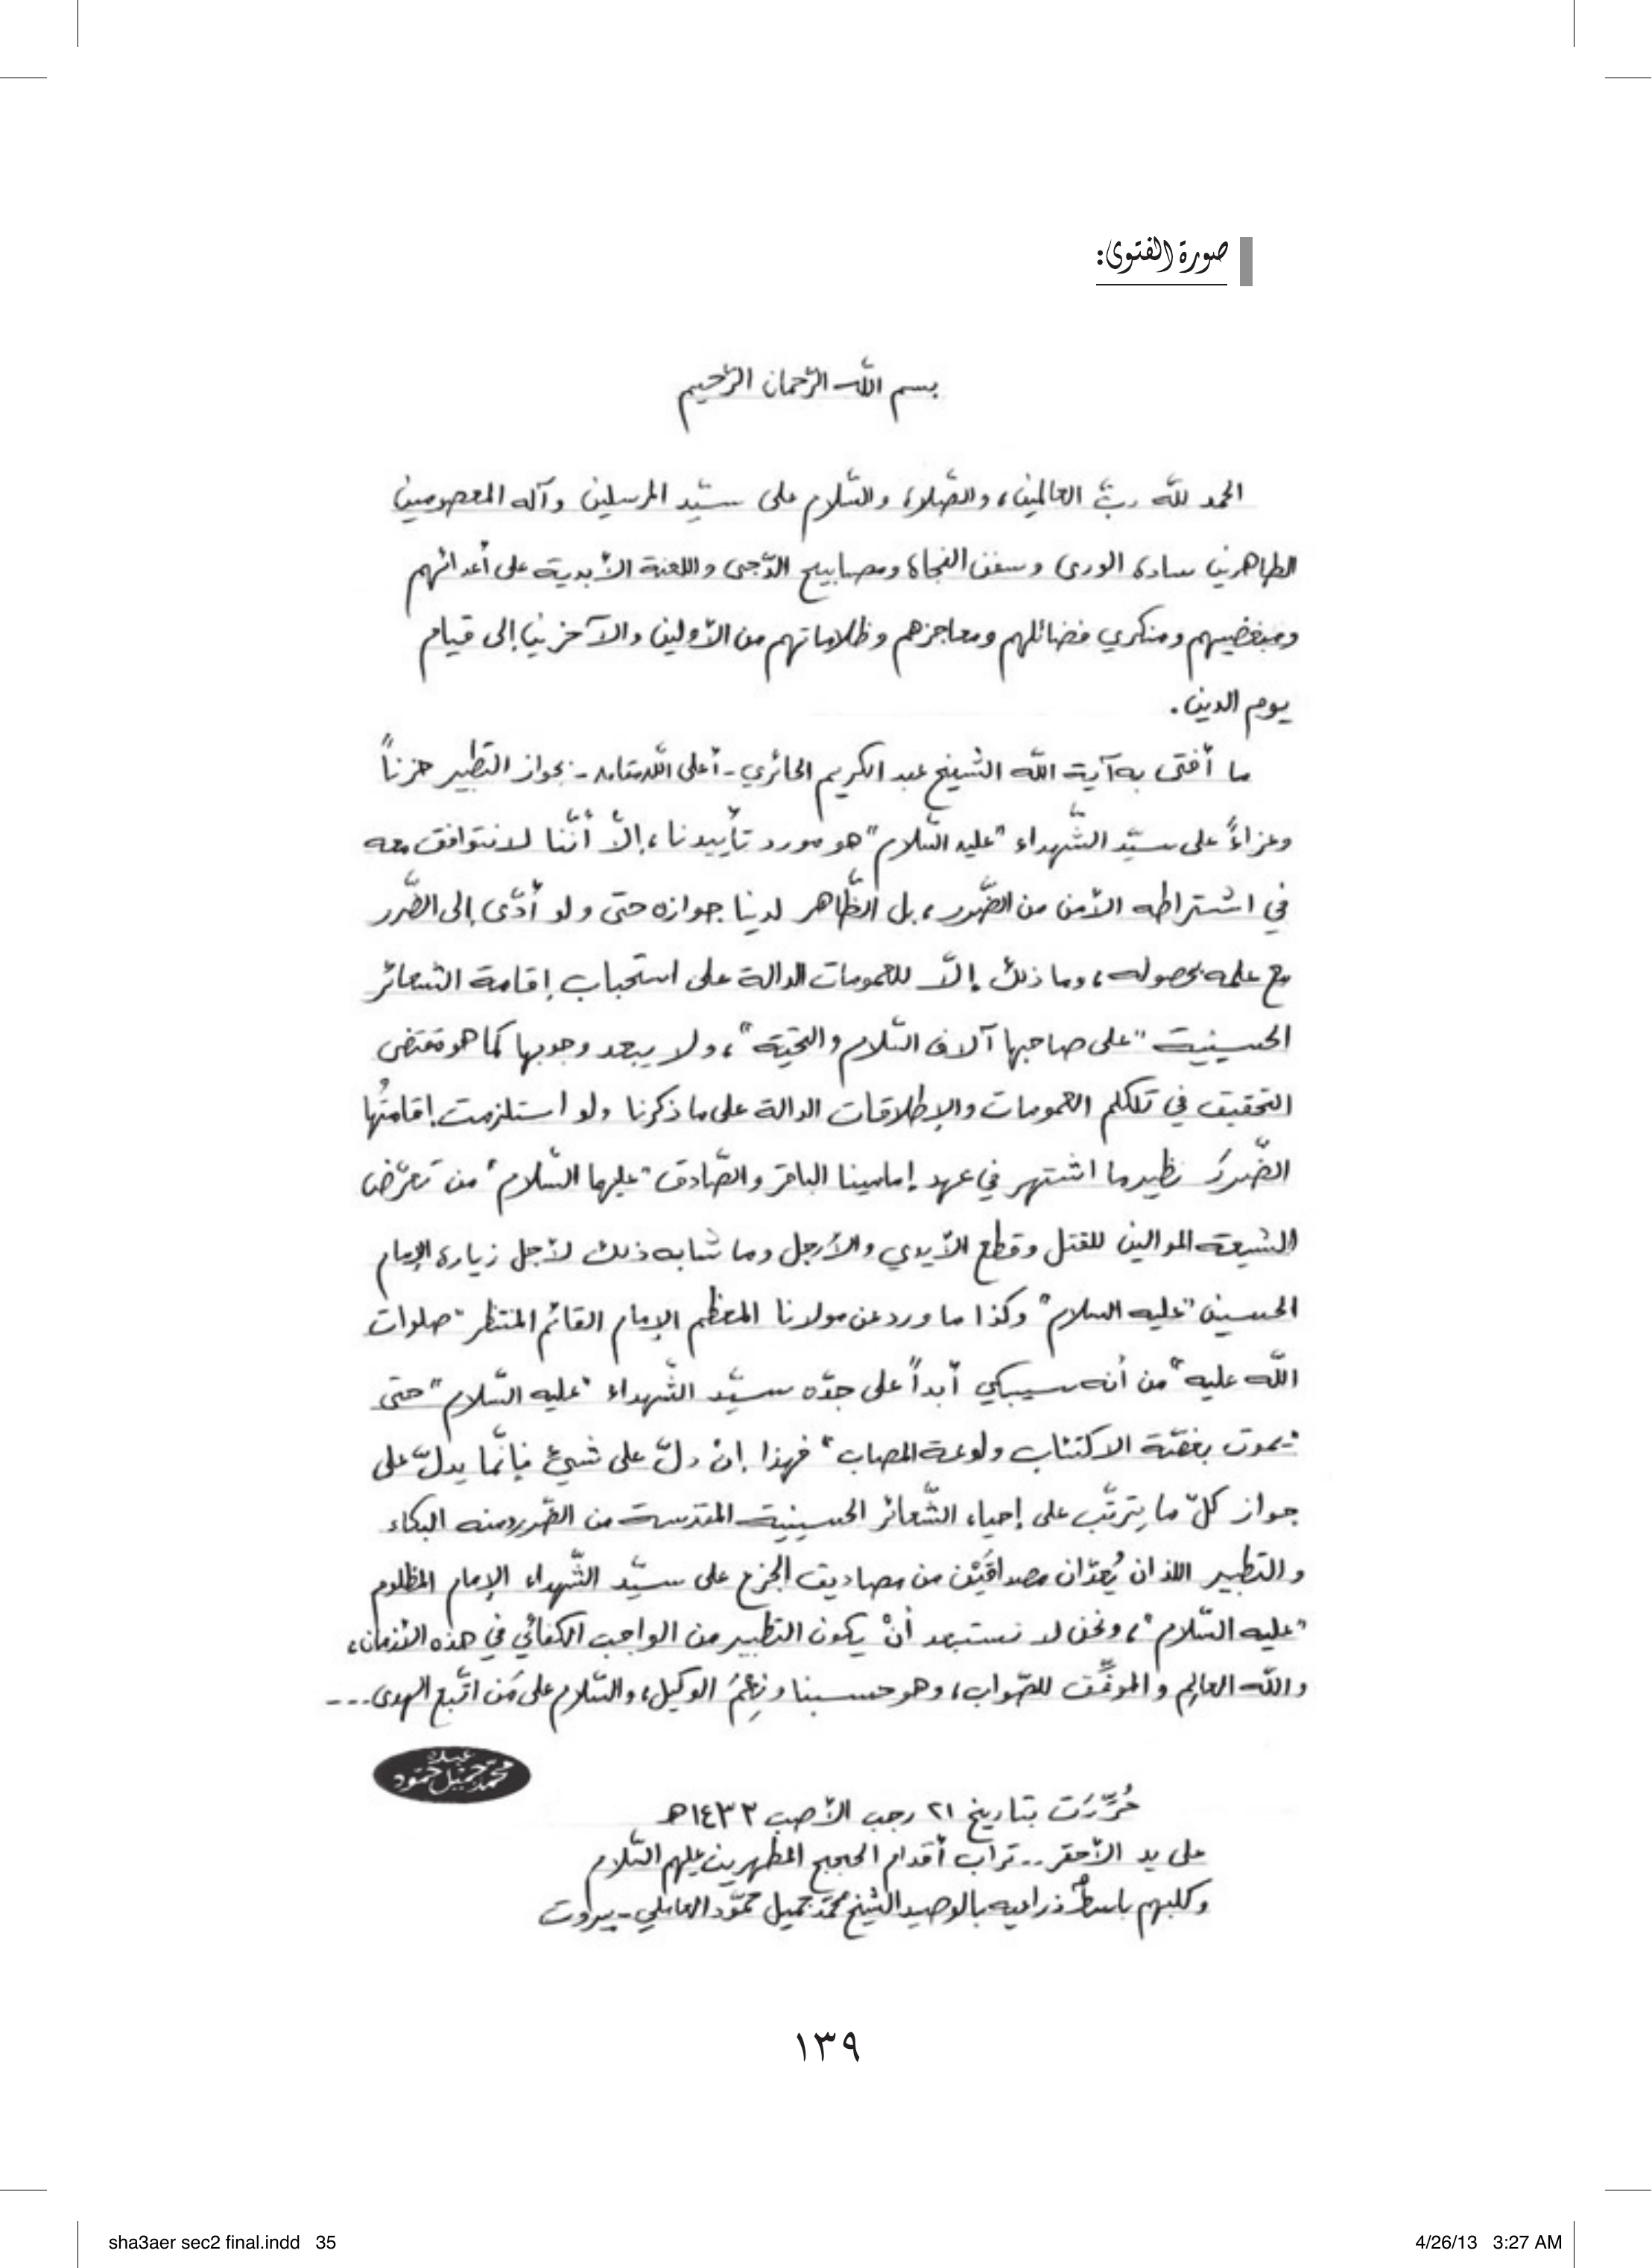 صورة الفتوى:
بسم الله الرّحمان الرّحيم
الحمد لله ربّ العالمين، والصّلاة والسّلام على سيّد المرسلين وآله المعصومين
الطاهرين سادة الورى وسفن النجاة ومصابيح الدّجى واللعنة الأبدية على أعدائهم
ومبغضيهم ومنكري فضائلهم ومعاجزهم وظلاماتهم من الأولين والآخرين إلى قيام
يوم الدين.
ما أفتى به آية الله الشيخ عبد الكريم الحائري - أعلى الله مقامه - بجواز التطبير حزناً
وعزاءً على سيّد الشّهداء "عليه السّلام" هو مورد تأييدنا، إلاّ أنّنا لا نتوافق معه
في اشتراطه الأمن من الضّرر، بل الظّاهر لدينا جوازه حتى ولو أدّى إلى الضّرر
مع علمه بحصوله، وما ذلك إلاّ للعمومات الدالة على استحباب إقامة الشعائر
الحسينية "على صاحبها آلاف السّلام والتحيّة"، ولا يبعد وجوبها كما هو مقتضى
التحقيق في تلكم العمومات والإطلاقات الدالة على ما ذكرنا ولو استلزمت إقامتُها
الضّررَ نظير ما اشتهر في عهد إمامينا الباقر والصّادق "عليهما السّلام" من تعرّض
الشيعة الموالين للقتل وقطع الأيدي والأرجل وما شابه ذلك لأجل زيارة الإمام
الحسين "عليه السلام" وكذا ما ورد عن مولانا المعظم الإمام القائم المنتظر "صلوات
الله عليه" من أنه سيبكي أبداً على جدّه سيّد الشّهداء "عليه السّلام" حتى
"يموت بغصّة الاكتئاب ولوعة المصاب" فهذا إنْ دلّ على شيءٍ فإنّما يدلّ على
جواز كلّ ما يترتّب على إحياء الشّعائر الحسينية المقدسة من الضّرر ومنه البكاء
والتطبير اللذان يُعدّان مصداقَيْن من مصاديق الجزع على سيّد الشّهداء الإمام المظلوم
"عليه السّلام"، ونحن لا نستبعد أنْ يكون التطبير من الواجب الكفائي في هذه الأزمان،
والله العالِم والموفِّق للصّواب، وهو حسبنا ونِعْمَ الوكيل، والسّلام على مَن اتّبع الهدى...
عبدك
محمد جميل حمّود
حُرِّرَت بتاريخ ٢١ رجب الأصب ١٤٣٣هـ
على يد الأحقر.. تراب أقدام الحجج المطهرين عليهم السّلام
وكلبهم باسطٌ ذراعيه بالوصيد الشيخ محمّد جميل حمّود العاملي - بيروت
١٣٩
sha3aer sec2 final.indd 35
4/26/13 3:27 AM